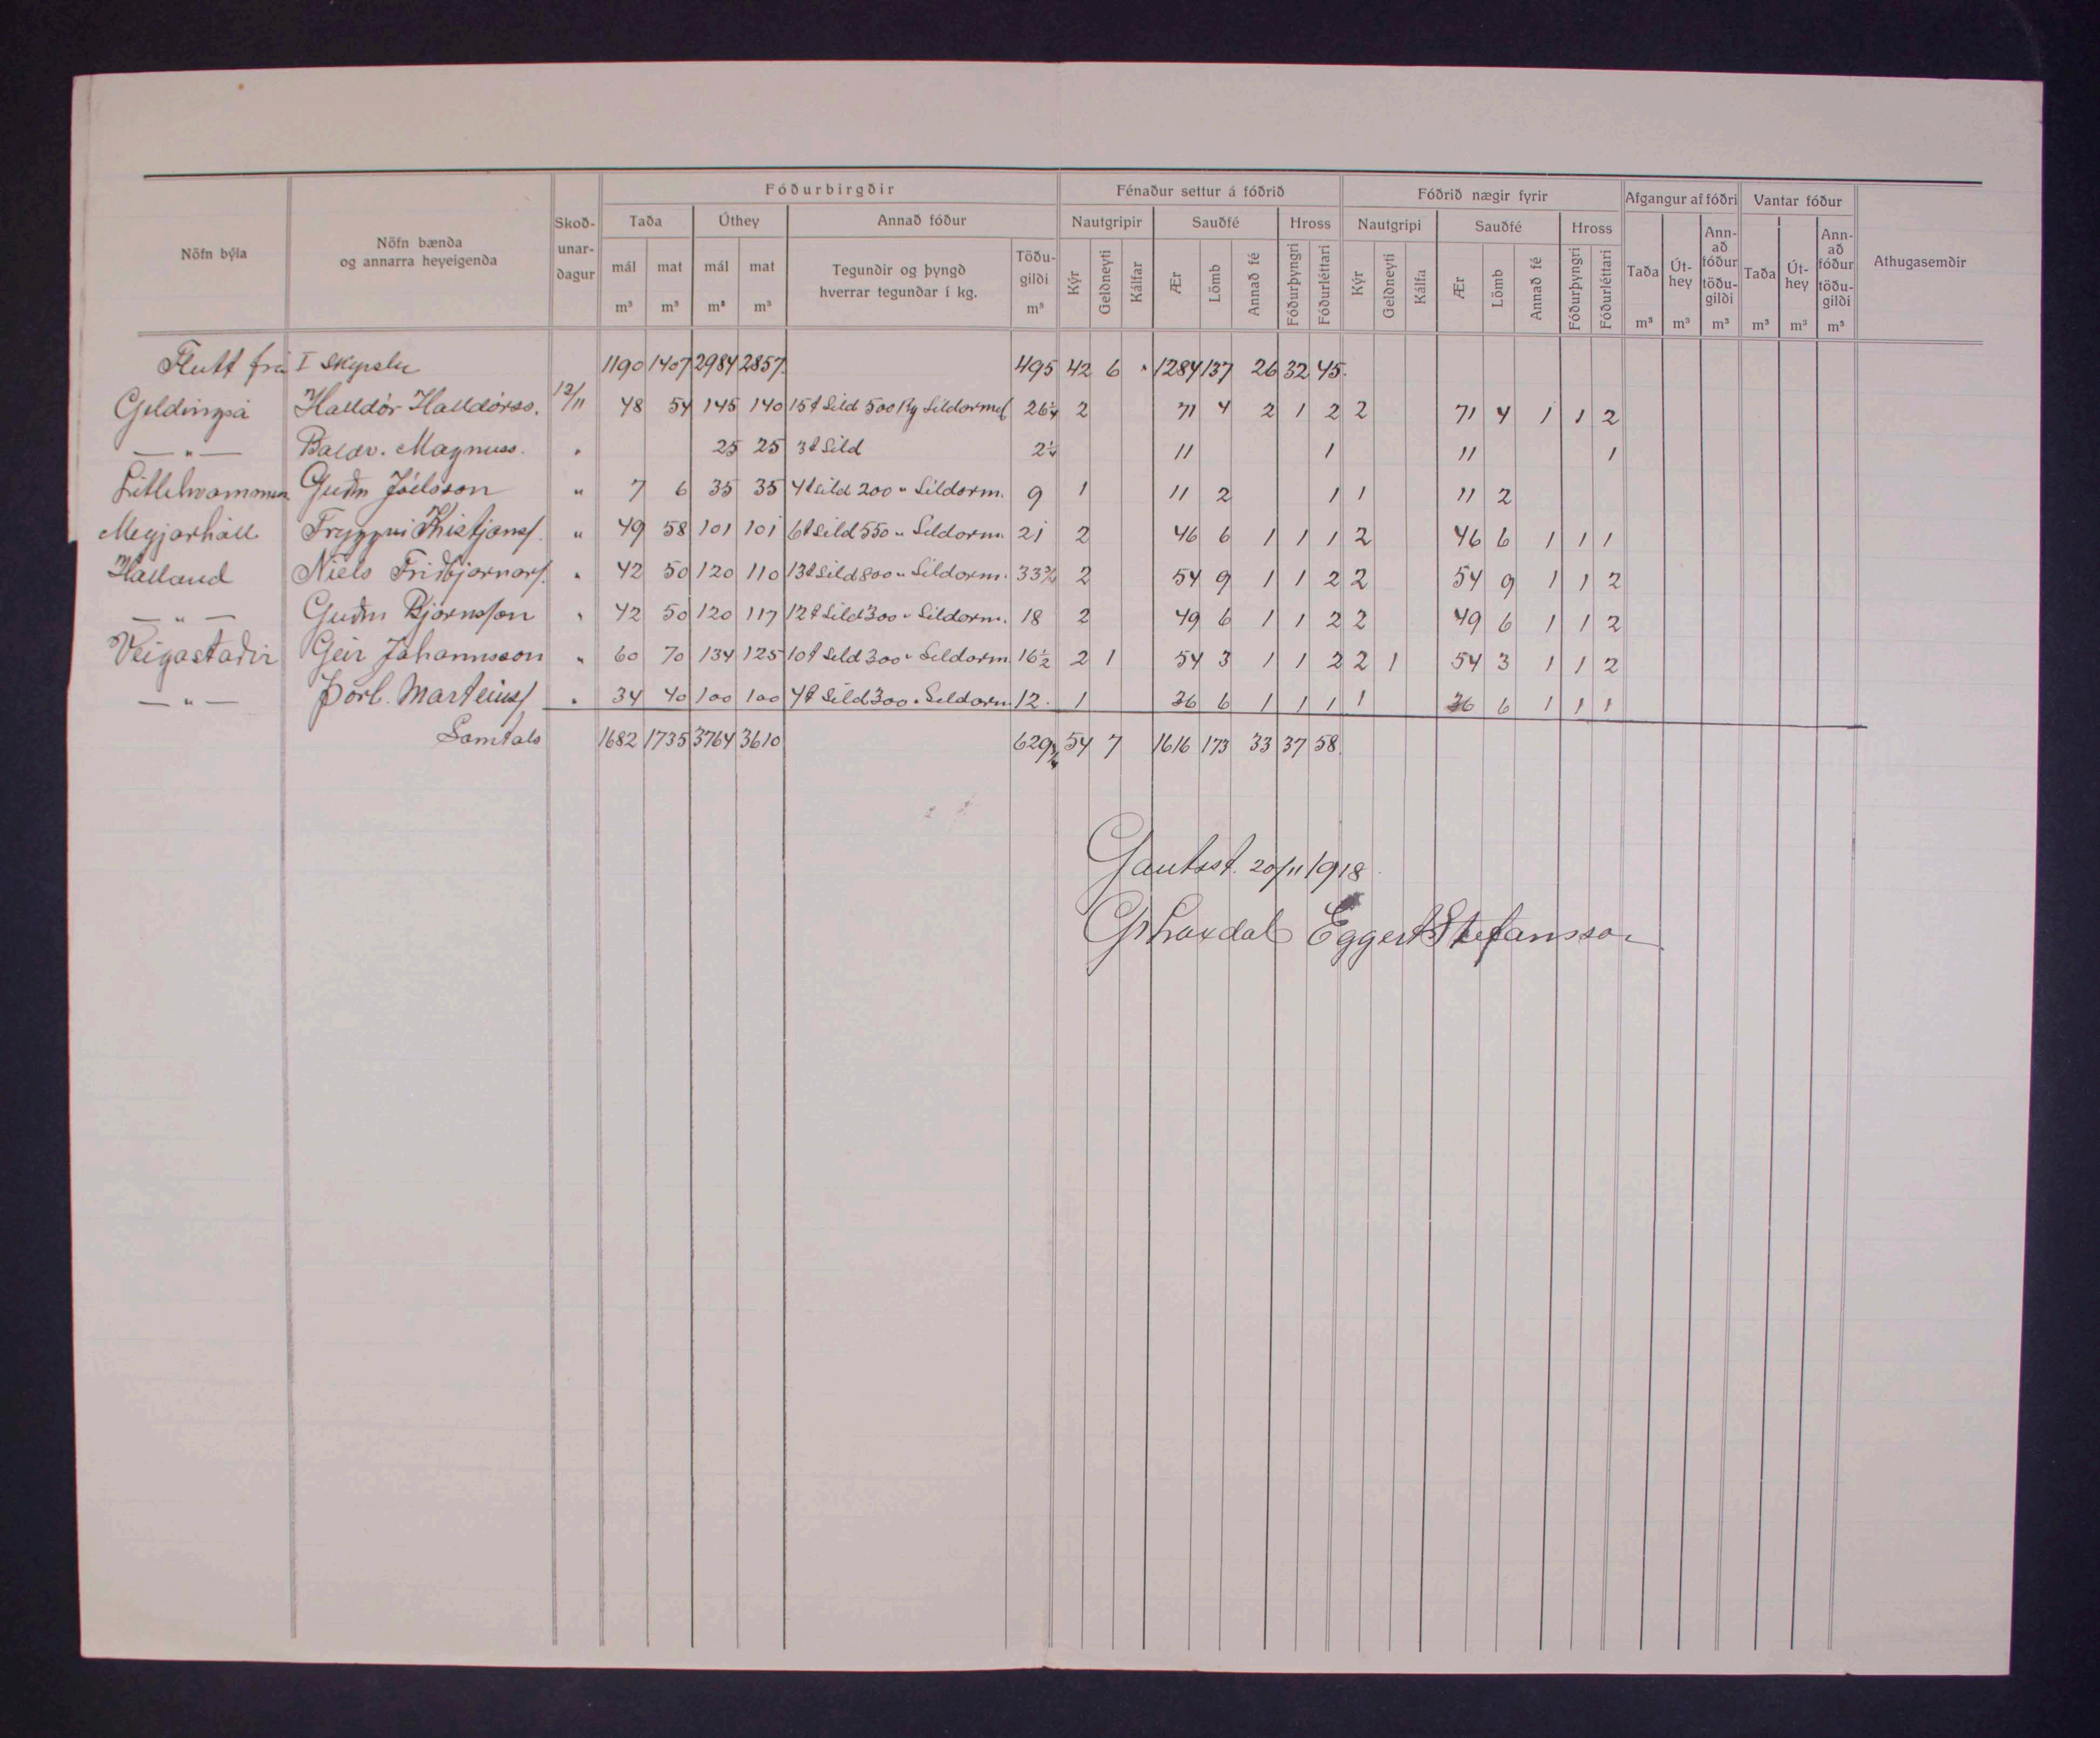 Nöfn býla Nöfn bænda og annarra heyeigenda Skoð-unar-dagur Fóðurbirgðir Fénaður settur á fóðrið Fóðrið nægir fyrir Afgangur af fóðri Vantar fóður Athugasemdir
Taða Úthey Annað fóður Nautgripir Sauðfé Hross Nautgripi Sauðfé Hross Taða Út-hey Ann-að fóður töðu-gildi Taða Út-hey Ann-að fóður töðu-gildi
mál mat mál mat Tegundir og þyngd hverrar tegundar í kg. Töðu-gildi Kýr Geldneyti Kálfar Ær Lömb Annað fé Fóðurþyngri Fóðurléttari Kýr Geldneyti Kálfa Ær Lömb Annað fé Fóðurþyngri Fóðurléttari
m³ m³ m³ m³ m³ m³ m³ m³ m³ m³ m³
Flutt frá I skyrslu 1190 1407 2984 2857 495 42 6 " 1284 137 26 32 45.
Geldingsá Halldór Halldórss. 12/11 48 54 145 140 15t Síld 500 kg Síldormél 26¼ 2 71 4 2 1 2 2 71 4 1 1 2
— " — Baldv. Magnuss. " 25 25 3t Síld 2¼ 11 1 11 1
Litlihvammur Guðm Jóelsson " 7 6 35 35 4t Síld 200 " Síldorm. 9 1 11 2 1 1 11 2
Meyjarhóll Tryggvi Kristjánss. " 49 58 101 101 6t Síld 550 " Síldorm. 21 2 46 6 1 1 1 2 46 6 1 1 1
Halland Níels Friðbjarnars. " 42 50 120 110 13t Síld 800 " Síldorm. 33¾ 2 54 9 1 1 2 2 54 9 1 1 2
— " — Guðm Bjornsson " 42 50 120 117 12t Síld 300 " Síldorm. 18 2 49 6 1 1 2 2 49 6 1 1 2
Veigastaðir Geir Jóhannsson " 60 70 134 125 10t Síld 300 " Síldorm 16½ 2 1 54 3 1 1 2 2 1 54 3 1 1 2
— " — Þorl. Marteinss " 34 40 100 100 4t Síld 300 " Síldorm 12. 1 36 6 1 1 1 1 36 6 1 1 1
Samtals 1682 1735 3764 3610 629¾ 54 7 1616 173 33 37 58.
Gautsst. 20/11 1918.
Eggert Stefansson